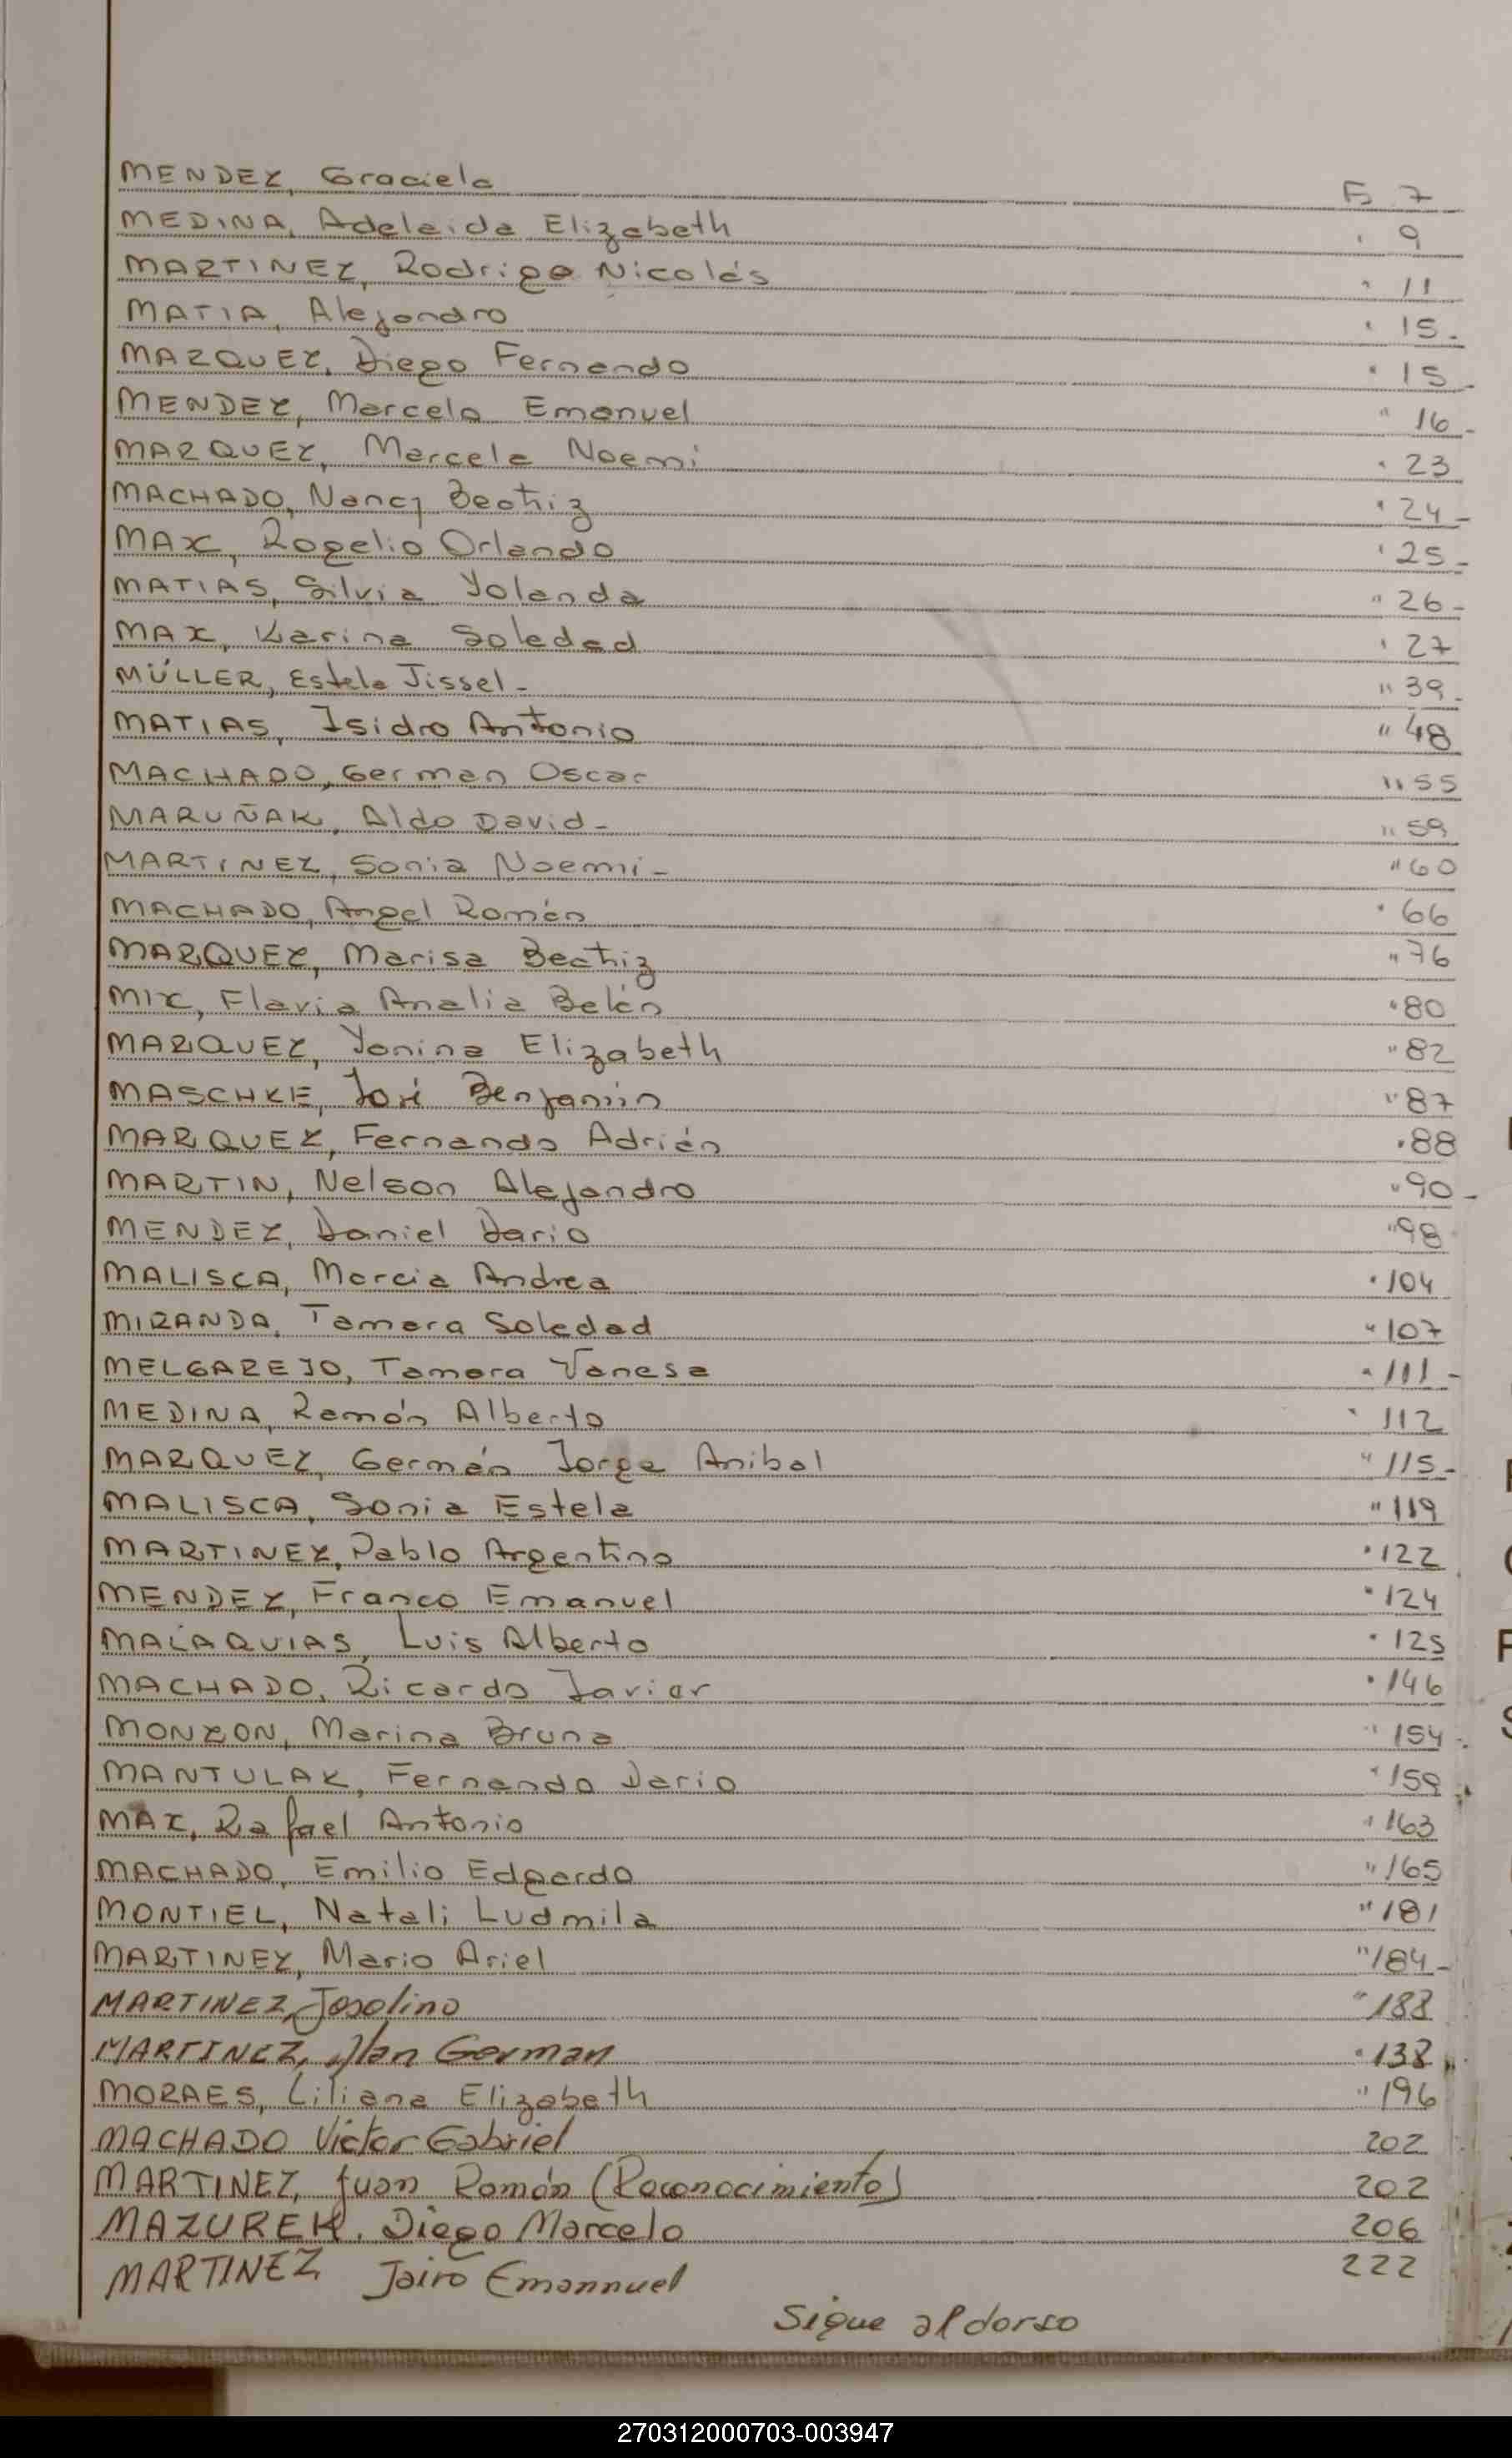 MENDEZ, Graciela F. 7
MEDINA, Adelaida Elizabeth " 9
MARTINEZ, Rodrigo Nicolás " 11
MATIA, Alejandro " 15-
MARQUEZ, Diego Fernando " 15-
MENDEZ, Marcelo Emanuel " 16-
MARQUEZ, Marcela Noemi " 23
MACHADO, Nancy Beatriz " 24-
MAX, Rogelio Orlando " 25-
MATIAS, Silvia Yolanda " 26-
MAX, Karina Soledad " 27
MÜLLER, Estela Jissel- " 39-
MATIAS, Isidro Antonio " 48
MACHADO, German Oscar " 55
MARUÑAK, Aldo David- " 59
MARTINEZ, Sonia Noemi- " 60
MACHADO, Angel Román " 66
MARQUEZ, Marisa Beatriz " 76
MIX, Flavia Analia Belén " 80
MARQUEZ, Yanina Elizabeth " 82
MASCHKE, José Benjamín " 87
MARQUEZ, Fernando Adrián " 88
MARTIN, Nelson Alejandro " 90-
MENDEZ, Daniel Dario " 98
MALISCA, Marcia Andrea " 104
MIRANDA, Tamara Soledad " 107
MELGAREJO, Tamara Vanesa " 111-
MEDINA, Ramón Alberto " 112
MARQUEZ, Germán Jorge Anibal " 115-
MALISCA, Sonia Estela " 119
MARTINEZ, Pablo Argentino " 122
MENDEZ, Franco Emanuel " 124
MALAQUIAS, Luis Alberto " 125
MACHADO, Ricardo Javier " 146
MONZON, Marina Bruna " 154-
MANTULAK, Fernando Dario " 159
MAX, Rafael Antonio " 163
MACHADO, Emilio Edgardo " 165
MONTIEL, Natali Ludmila " 181
MARTINEZ, Mario Ariel " 184-
MARTINEZ, Joselino " 188
MARTINEZ, Alan German " 138
MORAES, Liliana Elizabeth " 196
MACHADO Victor Gabriel 202
MARTINEZ, Juan Román (Reconocimiento) 202
MAZUREK, Diego Marcelo 206
MARTINEZ Jairo Emannuel 222
Sigue al dorso
270312000703-003947